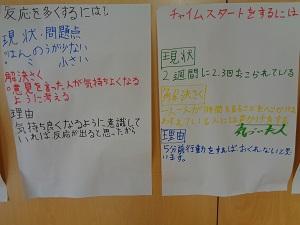 反応を多くするには?
現状・問題点
・はんのうが少ない
・〃 小さい
解決さく
・意見を言った人が気持ちよくなる
ように考える
理由
気持ち良くなるように意識して
いれば反応が出ると思ったから
チャイムスタートをするには
現状
2週間に2.3回おこられている
解決さく
一人一人が時間を見ることを心がける
わすれている人には声かけをする
理由
5分前行動をすればおくれないと思
います。